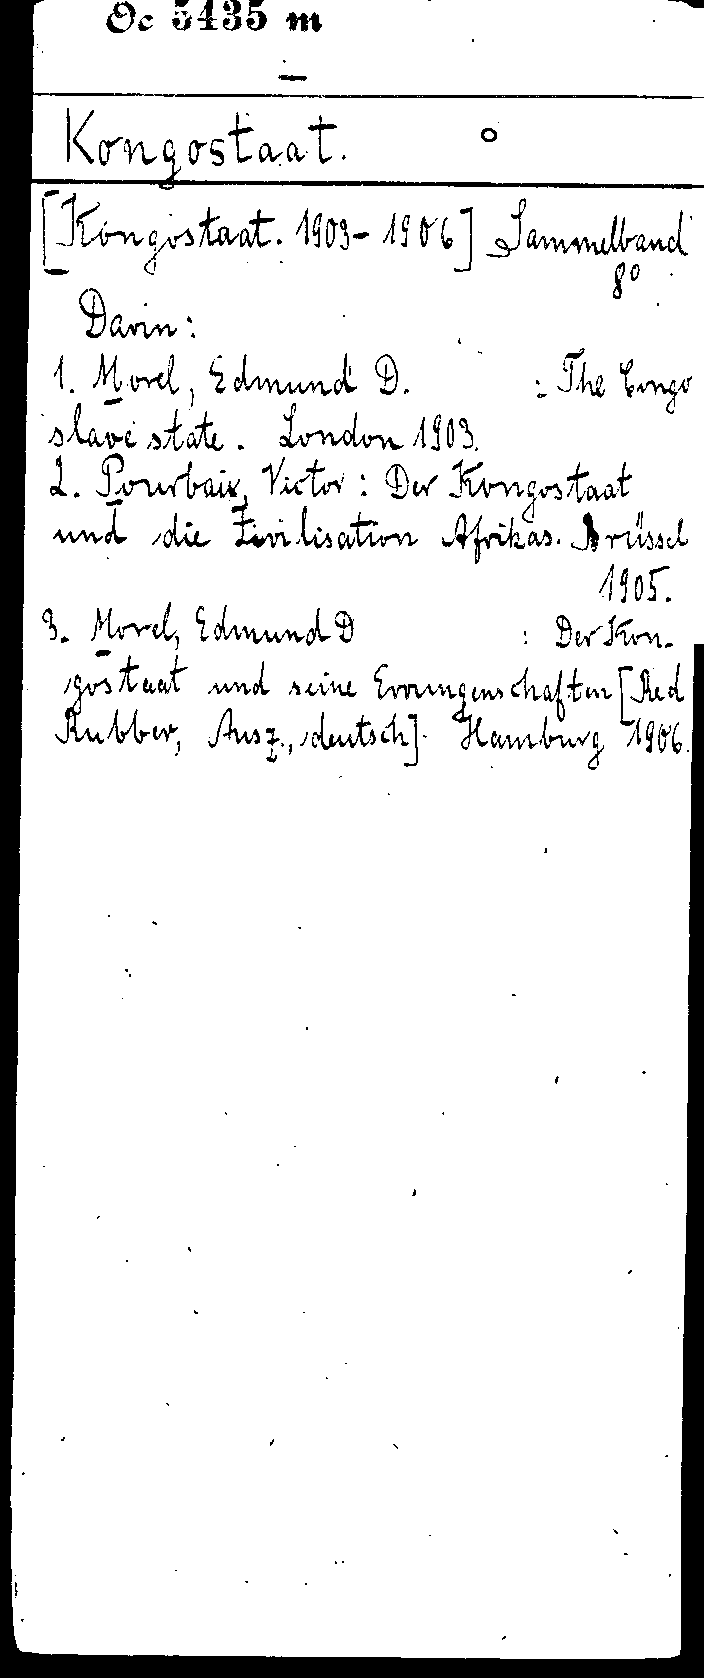 Oc 5435 m
Kongostaat. o
[Kongostaat. 1903-1906] Sammelband
8°
Darin:
1. Morel, Edmund D. : The Congo
slave state. London 1903.
2. Pourbaix, Victor: Der Kongostaat
und die Zivilisation Afrikas. Brüssel
1905.
3. Morel, Edmund D : Der Kon-
gostaat und seine Errungenschaften [Red
Rubber, Ausz., deutsch]. Hamburg 1906.